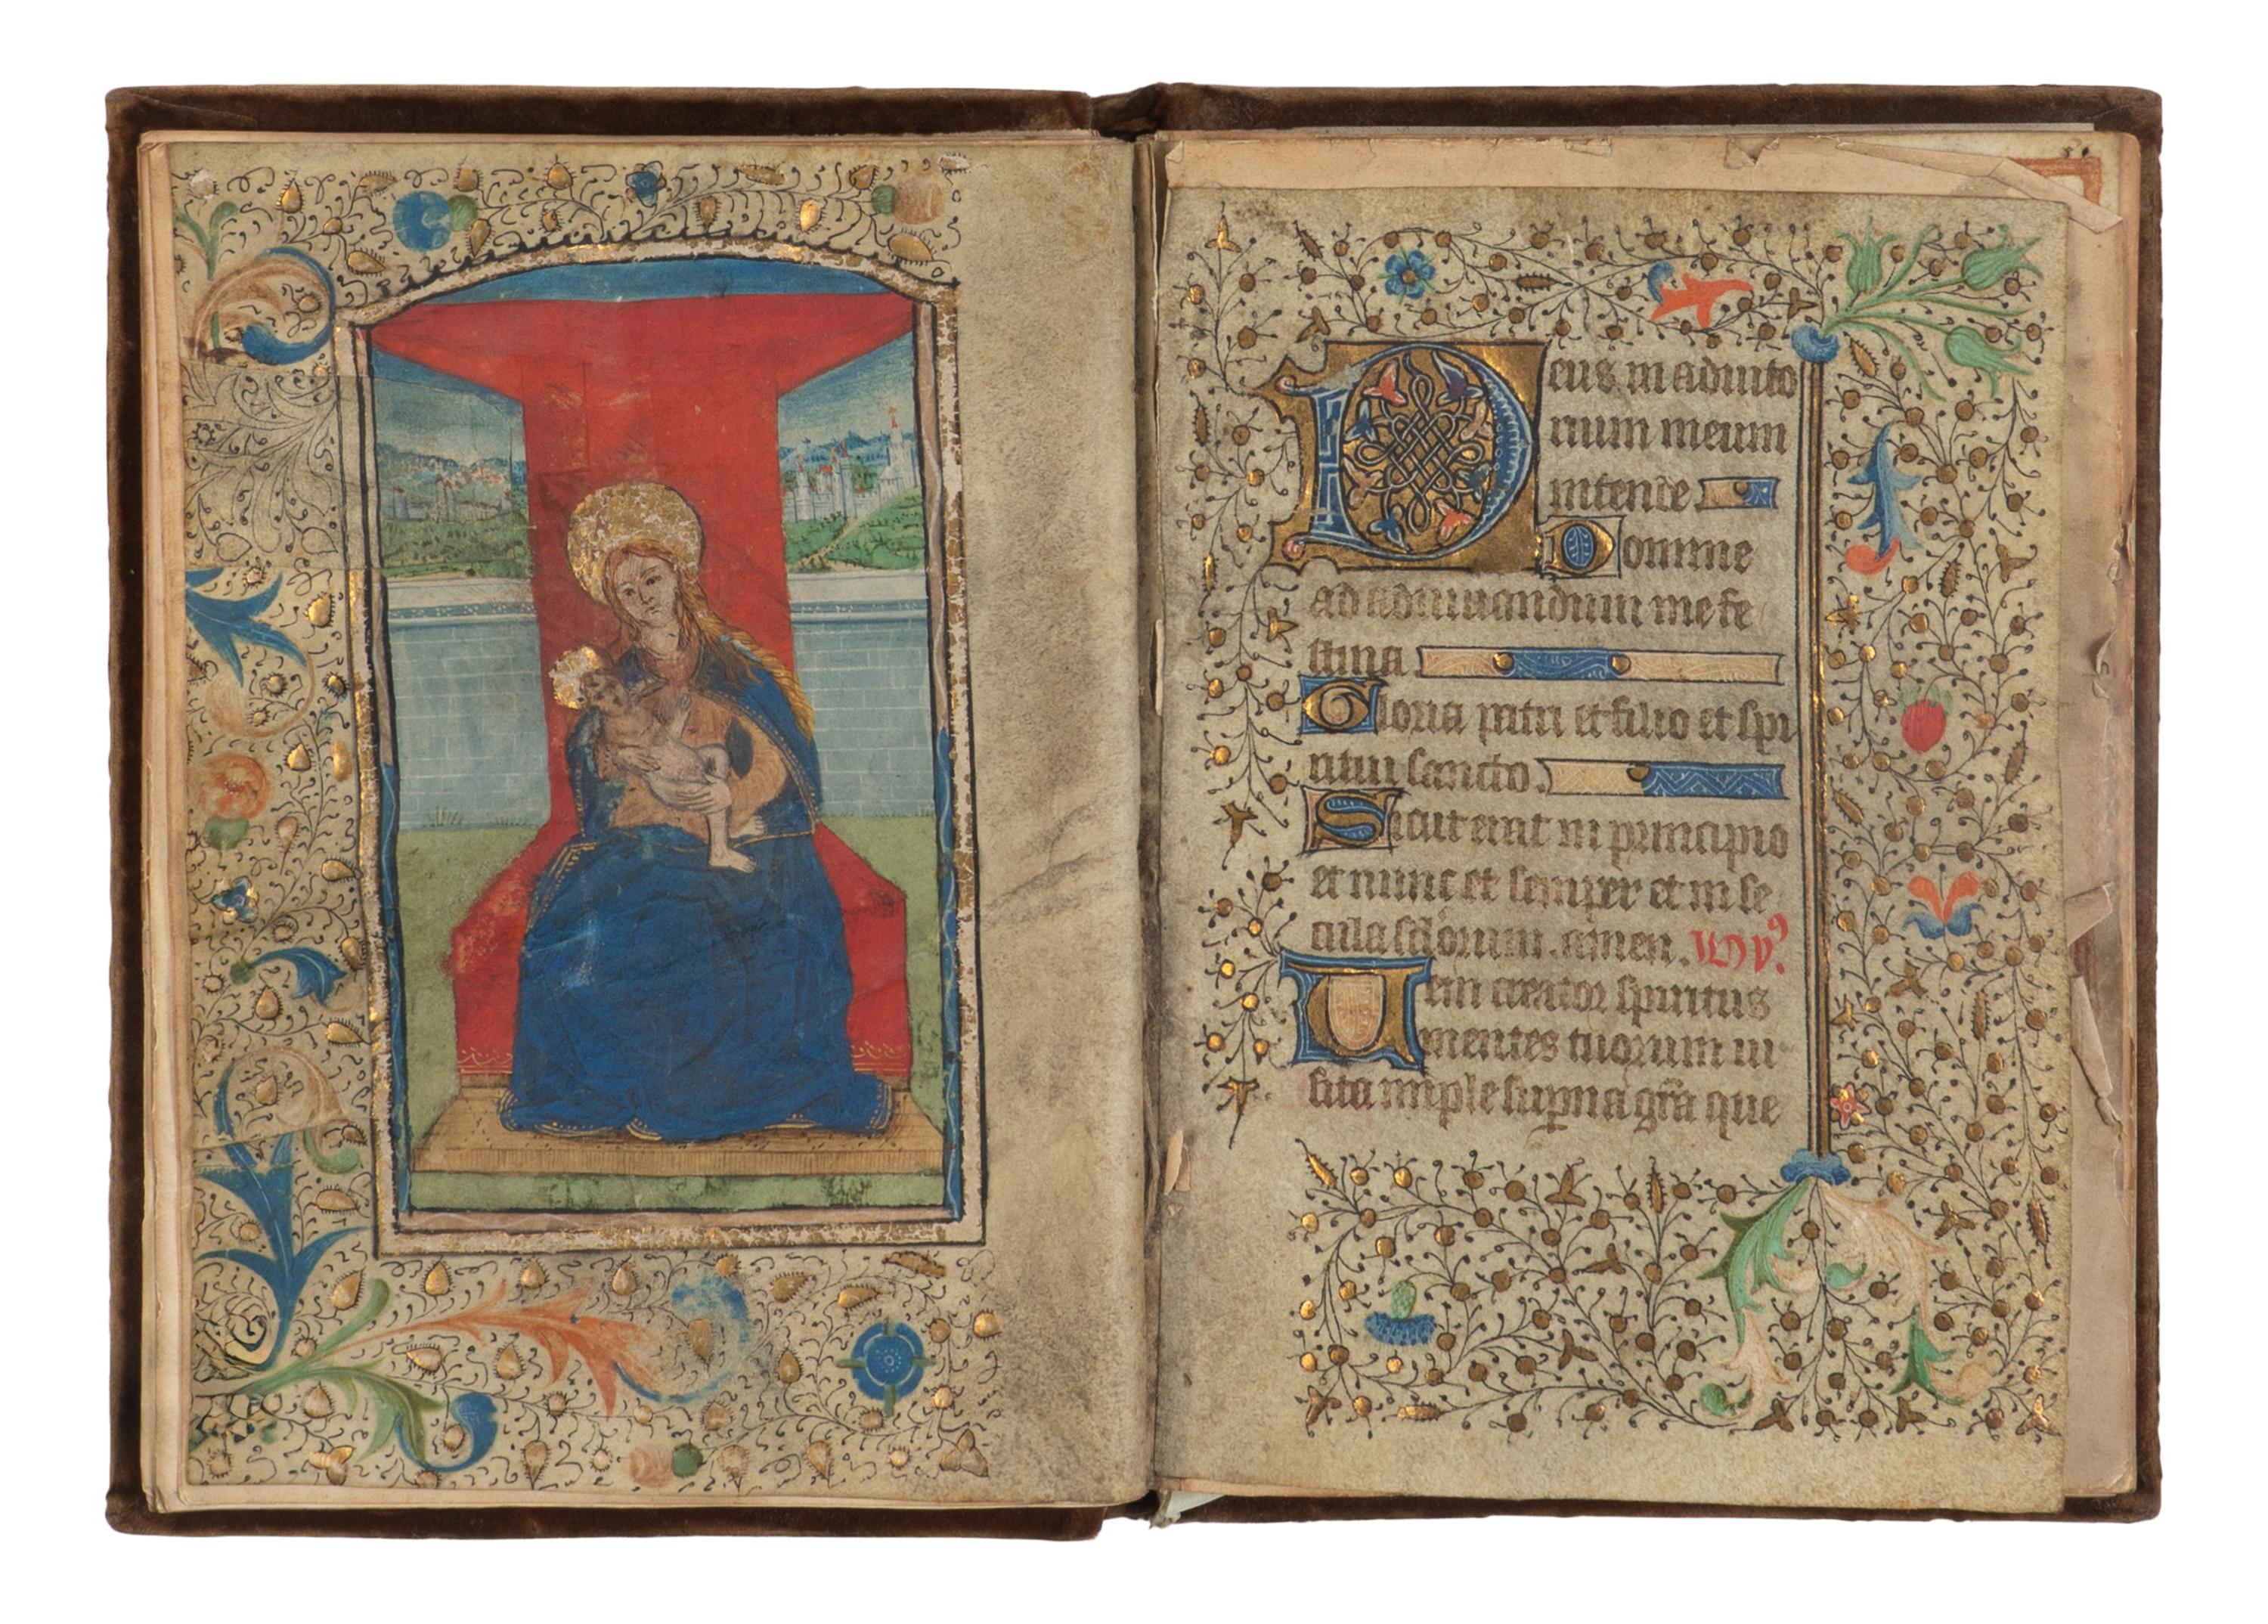 Deus in adiuto
rium meum
intende
Domine
ad adiuuandum me fe
stina
Gloria patri et filio et spi
ritui sancto.
Sicut erat in principio
et nunc et semper et in se
cula sc̄lorum. amen.
Ueni creator spiritus
mentes tuorum ui
sita imple sup̄na gr̄a que